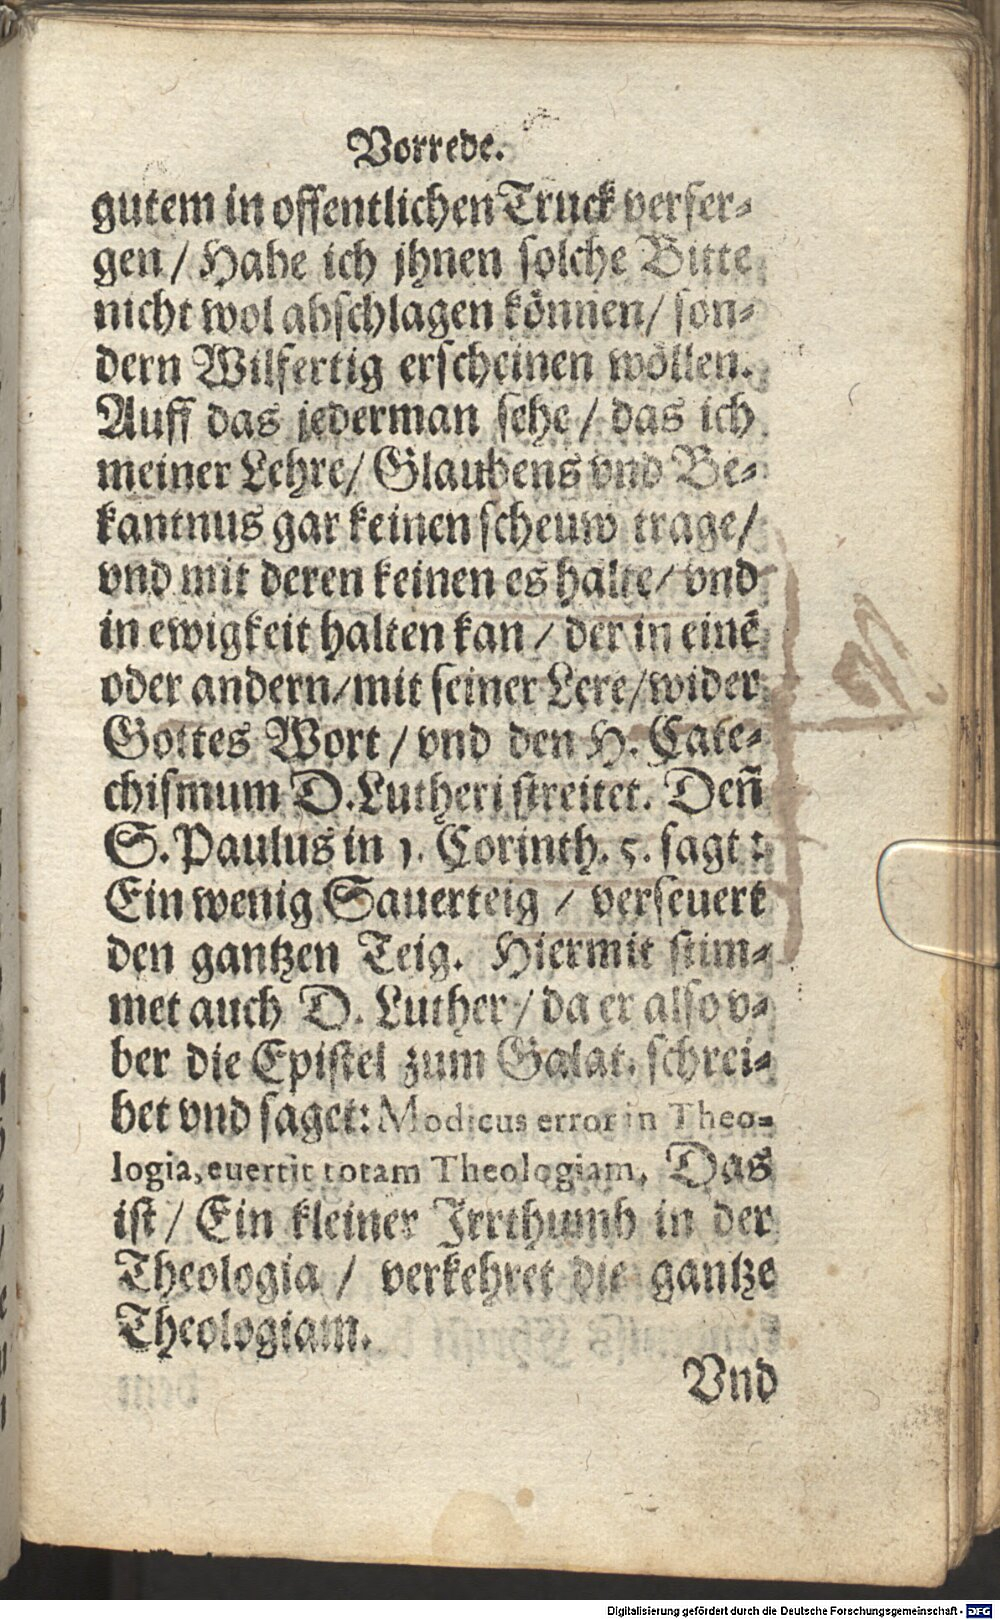 Vorrede.
gutem in offentlichen Truck verfer⸗
gen / Habe ich jhnen solche Bitte
nicht wol abschlagen können / son⸗
dern Wilfertig erscheinen wöllen.
Auff das jederman sehe / das ich
meiner Lehre / Glaubens vnd Be⸗
kantnus gar keinen scheuw trage /
vnd mit deren keinen es halte / vnd
in ewigkeit halten kan / der in einē
oder andern / mit seiner Lere / wider
Gottes Wort / vnd den H. Cate⸗
chismum D. Lutheri streitet. Deñ
S. Paulus in 1. Corinth. 5. sagt:
Ein wenig Sauerteig / verseuert
den gantzen Teig. Hiermit stim⸗
met auch D. Luther / da er also v⸗
ber die Epistel zum Galat. schrei⸗
bet vnd saget: Modicus error in Theo⸗
logia, euertit totam Theologiam. Das
ist / Ein kleiner Irrthumb in der
Theologia / verkehret die gantze
Theologiam.
Vnd
Digitalisierung gefördert durch die Deutsche Forschungsgemeinschaft - DFG